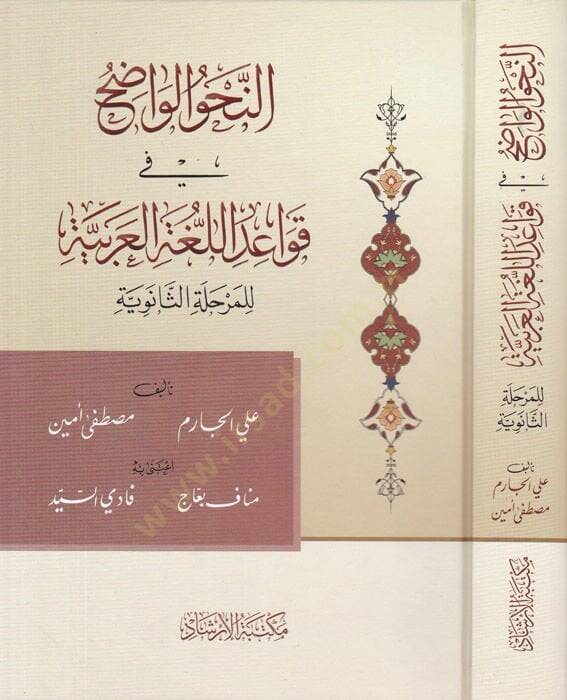 النَّحْوُ الوَاضِحُ
في
قَوَاعِدِ اللُّغَةِ العَرَبِيَّةِ
لِلْمَرْحَلَةِ الثَّانَوِيَّةِ
تأليف
علي الجارم مصطفى أمين
اعتنى به
مناف بعّاج فادي السيّد
مكتبة الإرشاد
النَّحْوُ الوَاضِحُ
في
قَوَاعِدِ اللُّغَةِ العَرَبِيَّةِ
لِلْمَرْحَلَةِ
الثَّانَوِيَّةِ
تأليف
علي الجارم
مصطفى أمين
مكتبة الإرشاد
www.irsad.com